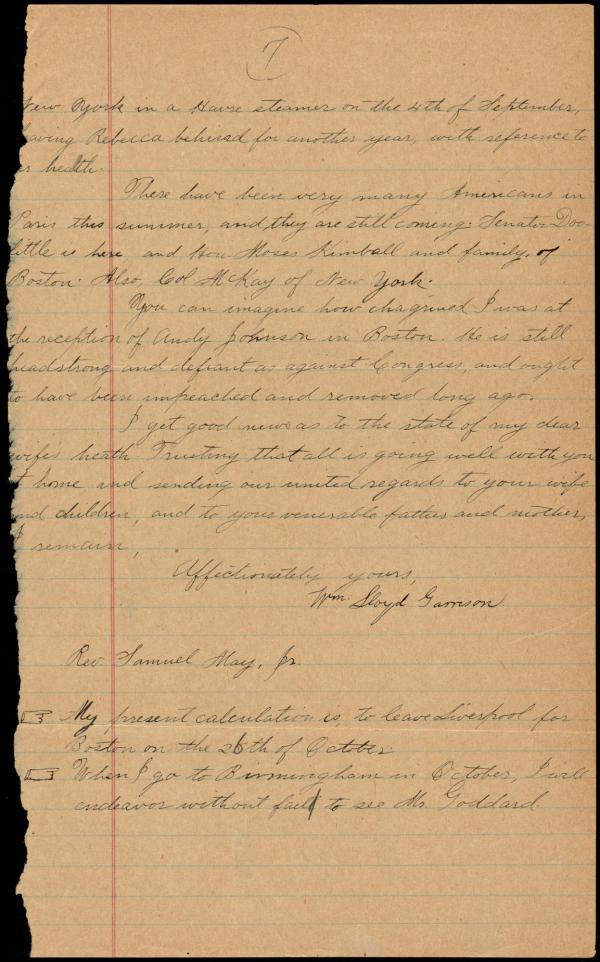 7
New York in a Havre steamer on the 4th of September,
aving Rebecca behind for another year, with reference to
er health.
There have been very many Americans in
Paris this summer, and they are still coming. Senator Doo-
little is here, and Hon Moses Kimball and family, of
Boston. Also, Col McKay of New York.
You can imagine how chagrined I was at
the reception of Andy Johnson in Boston. He is still
headstrong and defiant as against Congress, and ought
to have been impeached and removed long ago.
I get good news as to the state of my dear
wife's heath. Trusting that all is going well with you
t home and sending our united regards to your wife
and children, and to your venerable father and mother,
I remain,
Affectionately yours,
Wm. Lloyd Garrison.
Rev. Samuel May, Jr.
My present calculation is, to leave Liverpool for
Boston on the 26th of October.
When I go to Birmingham in October, I will
endeavor without fail to see Mr. Goddard.